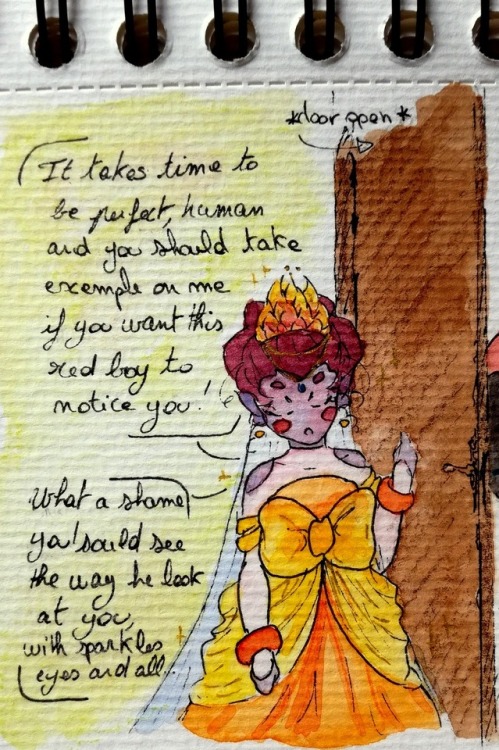 *door open*
It takes time to
be perfect, human
and you should take
exemple on me
if you want this
red boy to
notice you!
What a shame
you sould see
the way he look
at you,
with sparkles
eyes and all..